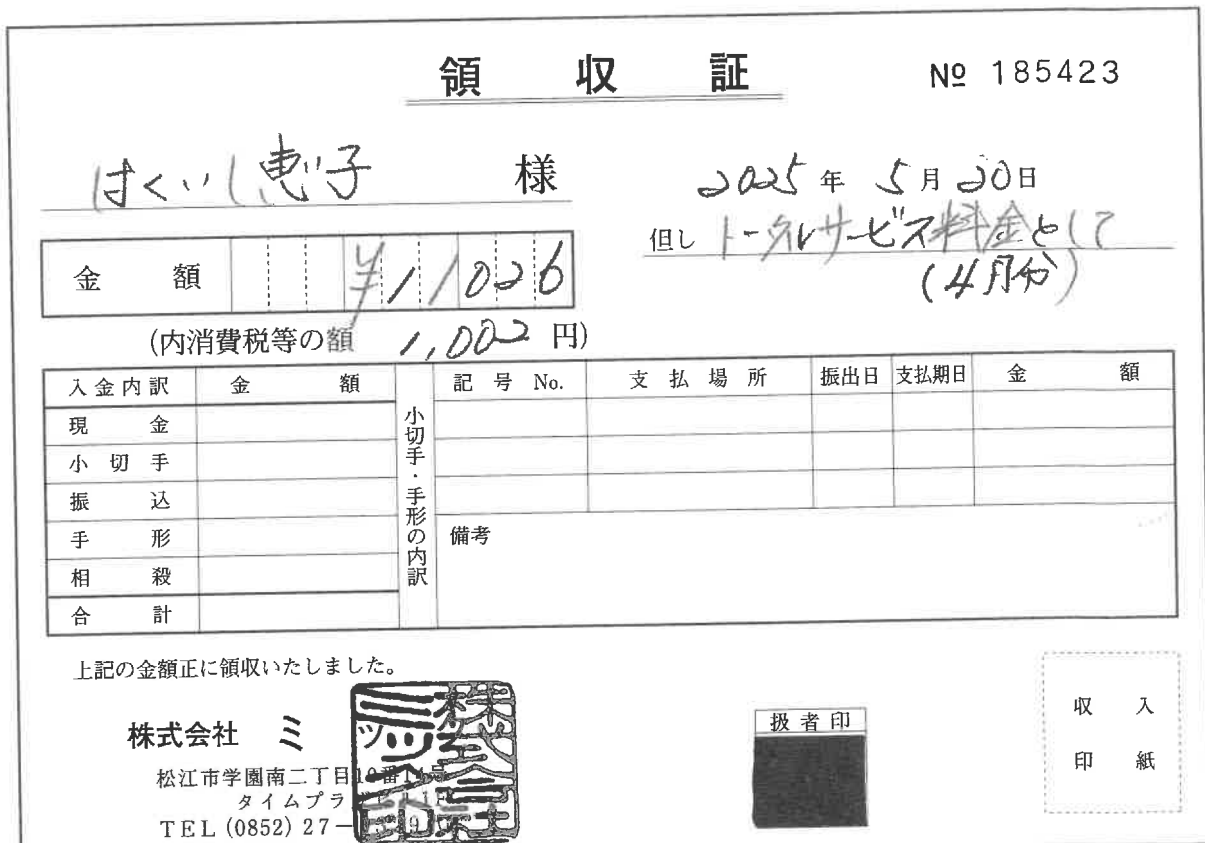 領収証 № 185423
はくいし恵子 様
2025年 5月20日
但し トータルサービス料金として
(4月分)
金額 ¥11026
(内消費税等の額 1,002 円)
入金内訳 金額
現金
小切手
振込
手形
相殺
合計
小切手・手形の内訳
記号No. 支払場所 振出日 支払期日 金額
備考
上記の金額正に領収いたしました。
株式会社 ミック
松江市学園南二丁目
タイムプラ
TEL (0852) 27-
扱者印
収入
印紙